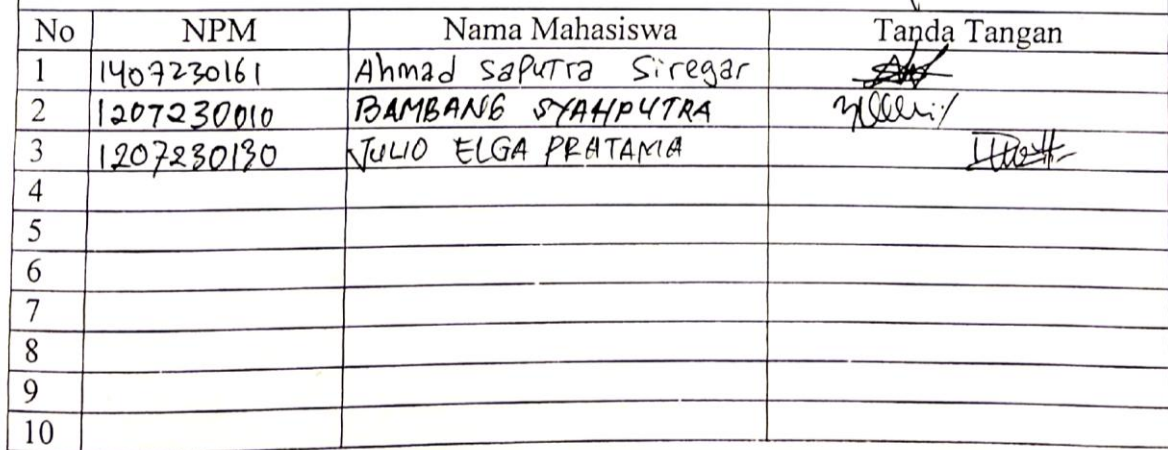 No NPM Nama Mahasiswa Tanda Tangan
1 1407230161 Ahmad Saputra Siregar
2 1207230010 BAMBANG SYAHPUTRA
3 1207230130 JULIO ELGA PRATAMA
4
5
6
7
8
9
10